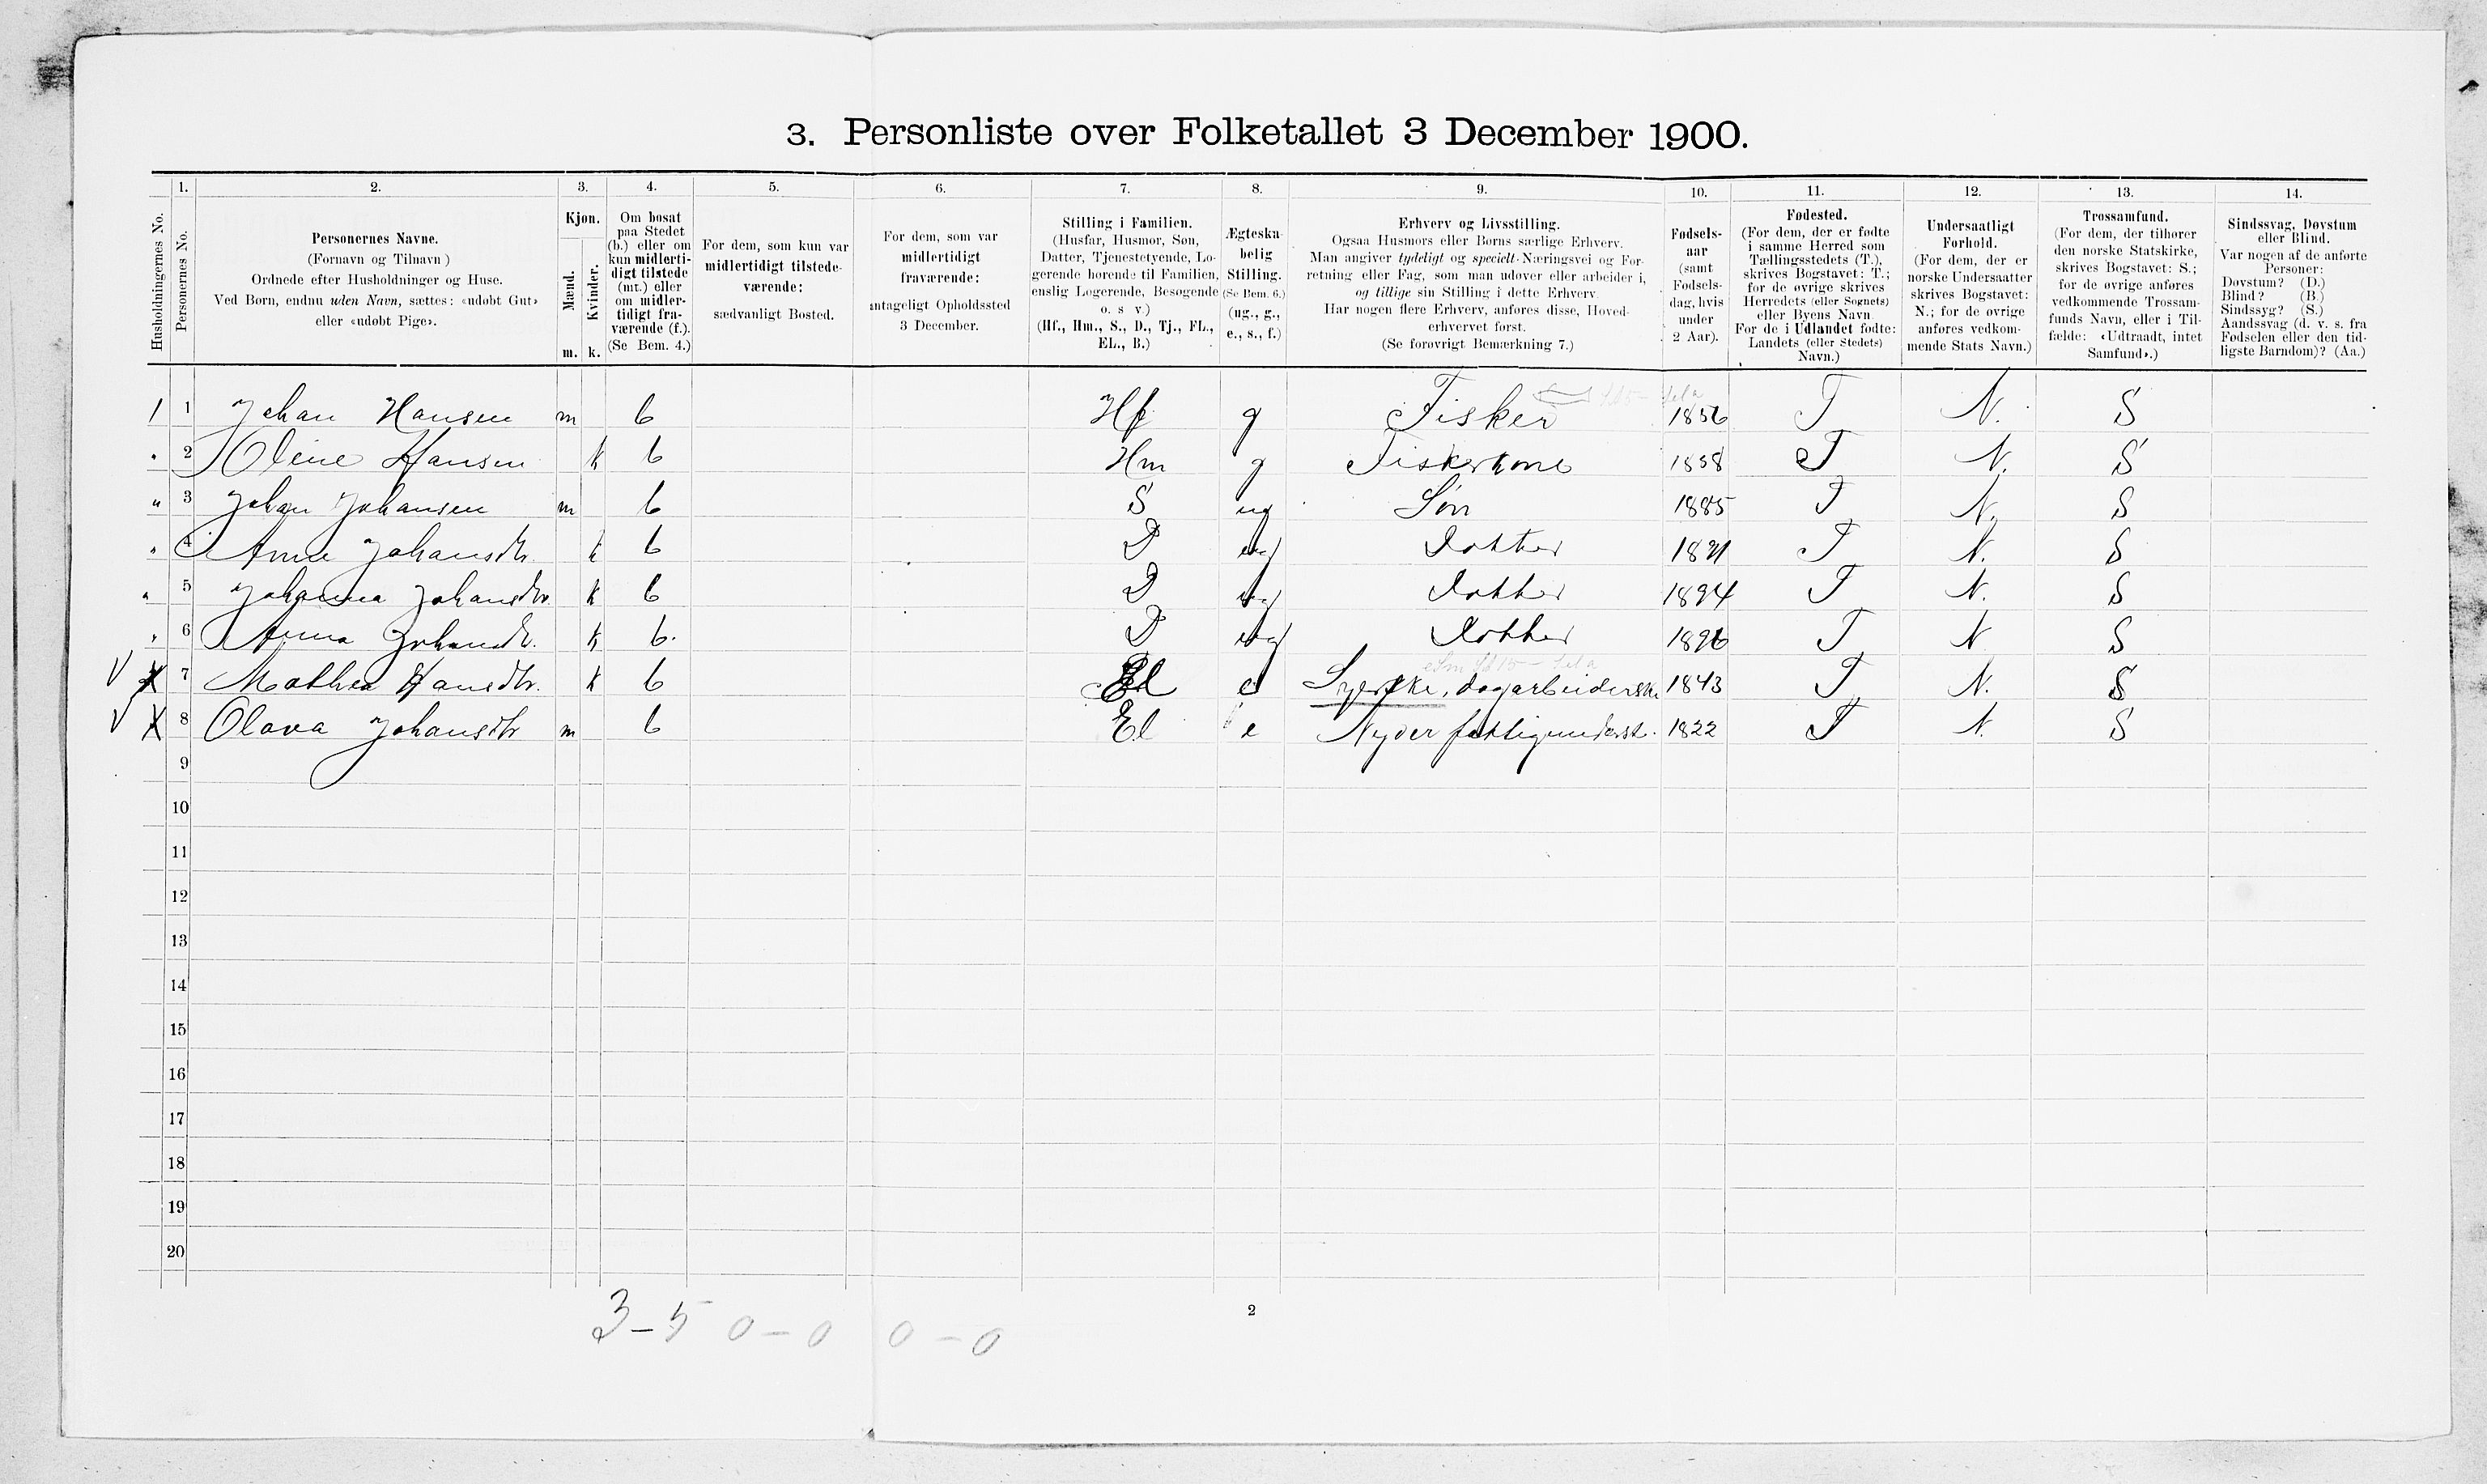 3. Personliste over Folketallet 3 December 1900.
1. 2. 3. 4. 5. 6. 7. 8. 9. 10. 11. 12. 13. 14.
Husholdningernes No.
Personernes No.
Personernes Navne.
(Fornavn og Tilnavn )
Ordnede efter Husholdninger og Huse.
Ved Børn, endnu uden Navn, sættes: «udøbt Gut»
eller «udøbt Pige».
Kjøn.
Mænd.
Kvinder.
m. k.
Om bosat
paa Stedet
(b.) eller om
kun midlerti-
digt tilstede
(mt.) eller
om midler-
tidigt fra-
værende (f.).
(Se Bem. 4.)
For dem, som kun var
midlertidigt tilstede-
værende:
sædvanligt Bosted.
For dem, som var
midlertidigt
fraværende:
antageligt Opholdssted
3 December.
Stilling i Familien.
(Husfar, Husmor, Søn,
Datter, Tjenestetyende, Lo-
gerende hørende til Familien,
enslig Logerende, Besøgende
o. s v.)
(Hf., Hm., S., D., Tj., FL.,
EL., B.)
Ægteska-
belig
Stilling.
(Se Bem. 6.)
(ug., g.,
e., s., f.)
Erhverv og Livsstilling.
Ogsaa Husmors eller Børns særlige Erhverv.
Man angiver tydeligt og specielt Næringsvei og For-
retning eller Fag, som man udøver eller arbeider i,
og tillige sin Stilling i dette Erhverv.
Har nogen flere Erhverv, anføres disse, Hoved-
erhvervet først.
(Se forøvrigt Bemærkning 7.)
Fødsels-
aar
(samt
Fødsels-
dag, hvis
under
2 Aar).
Fødested.
(For dem, der er fødte
i samme Herred som
Tællingsstedets (T.),
skrives Bogstavet: T.;
for de øvrige skrives
Herredets (eller Sognets)
eller Byens Navn.
For de i Udlandet fødte:
Landets (eller Stedets)
Navn.)
Undersaatligt
Forhold.
(For dem, der er
norske Undersaatter
skrives Bogstavet:
N.; for de øvrige
anføres vedkom-
mende Stats Navn.)
Trossamfund.
(For dem, der tilhører
den norske Statskirke,
skrives Bogstavet: S.;
for de øvrige anføres
vedkommende Trossam-
funds Navn, eller i Til-
fælde: «Udtraadt, intet
Samfund».)
Sindssvag, Døvstum
eller Blind.
Var nogen af de anførte
Personer:
Døvstum? (D.)
Blind? (B.)
Sindssyg? (S.)
Aandssvag (d. v. s. fra
Fødselen eller den tid-
ligste Barndom)? (Aa.)
1 1 Johan Hansen m b Hf g Fisker 1856 T N. S
" 2 Oline Hansen k b Hm g Fiskerkone 1858 T N. S
" 3 Johan Johansen m b S ug Søn 1885 T N. S
" 4 Anne Johansdtr. k b D ug Dotter 1891 T N. S
" 5 Johanna Johansdtr. k b D ug Dotter 1894 T N. S
" 6 Anna Johansdtr. k b. D ug Dotter 1896 T N S
V X 7 Mathea Hansdtr. k b El e Syerske, dagarbeiderske 1843 T N. S
V X 8 Olava Johansdtr m b El e Nyder fattigunderst. 1822 T N. S
9
10
11
12
13
14
15
16
17
18
19
20
3 – 5 0 – 0 0 – 0
2